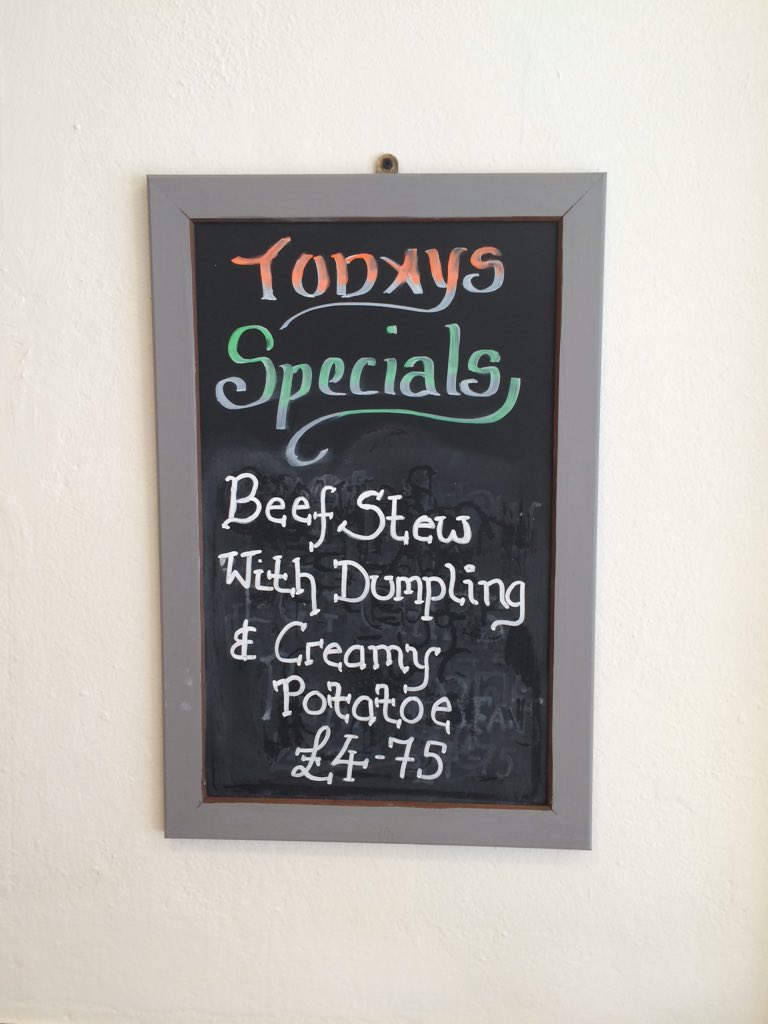 Todays
Specials
Beef Stew
With Dumpling
& Creamy
Potatoe
£4-75